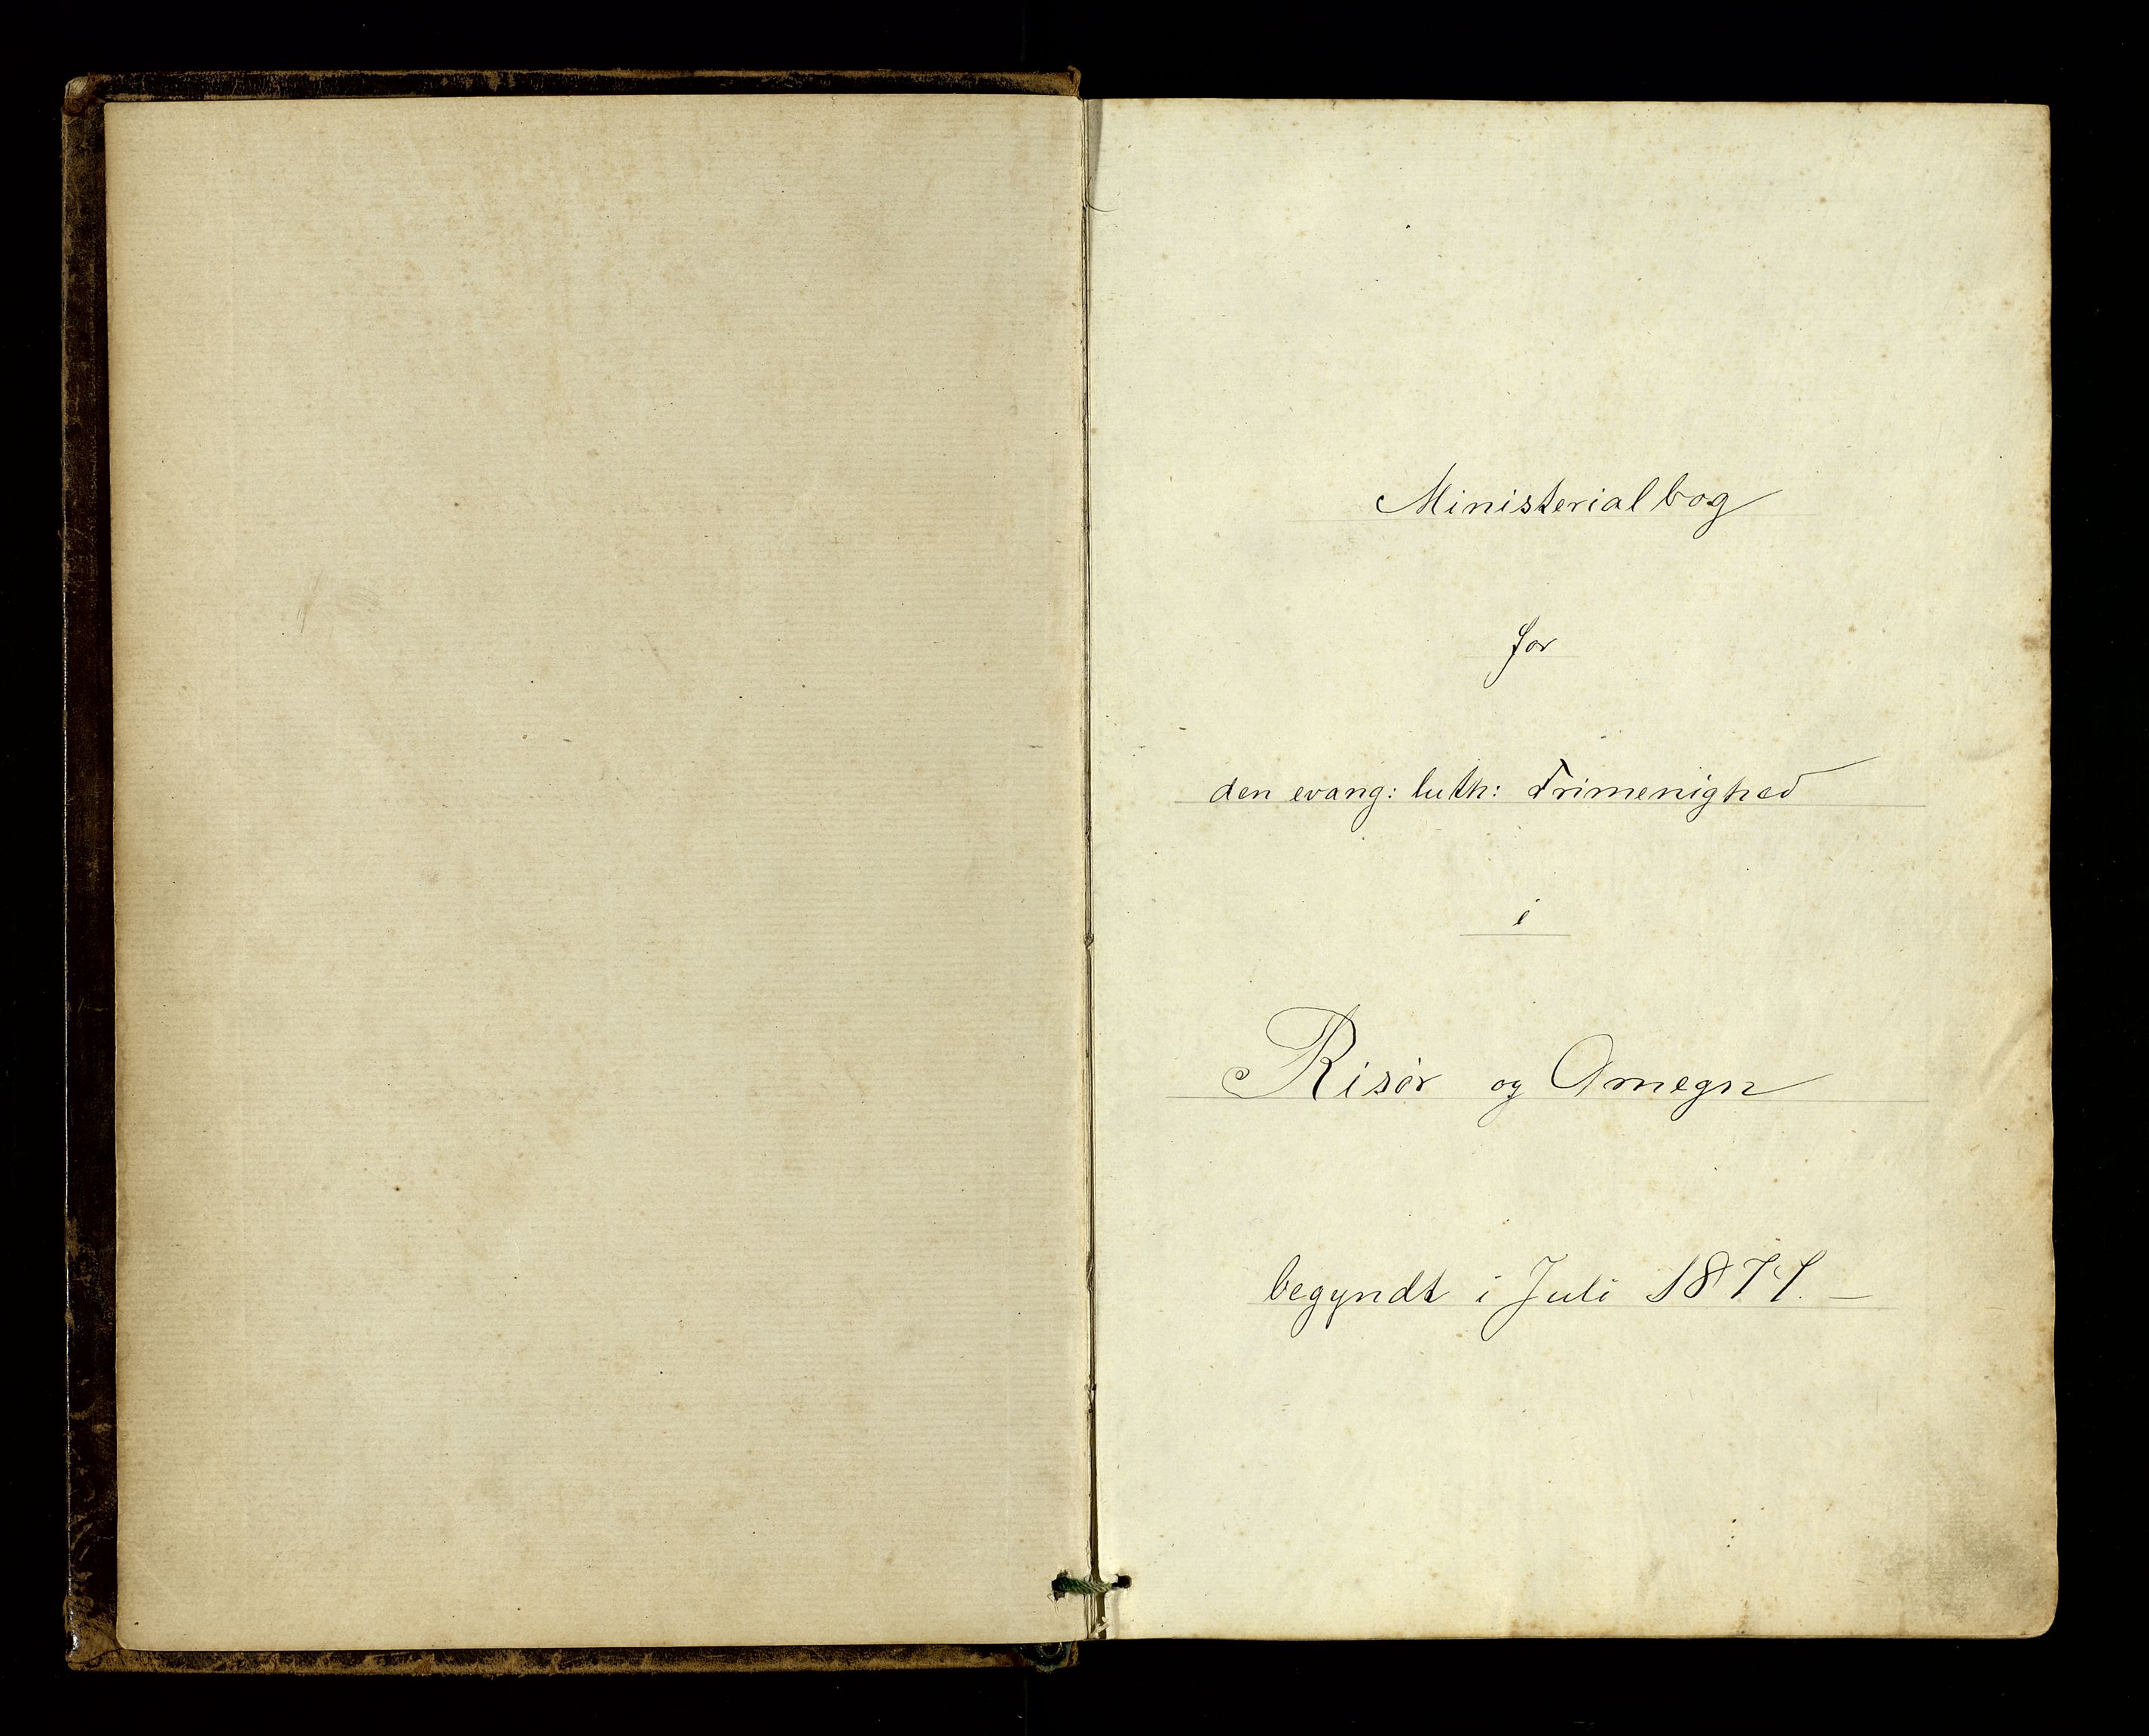 Ministerialbog
for
den evang: luth: Frimenighed
i
Risør og Omegn
begyndt i Juli 1877. –